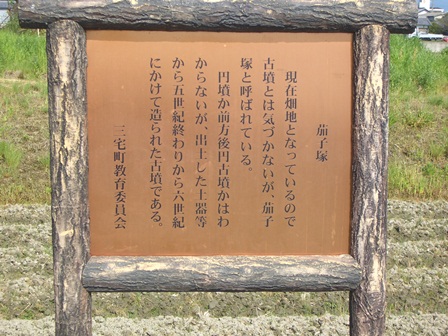 茄子塚
現在畑地となっているので
古墳とは気づかないが、茄子
塚と呼ばれている。
円墳か前方後円古墳かはわ
からないが、出土した土器等
から五世紀終わりから六世紀
にかけて造られた古墳である。
三宅町教育委員会